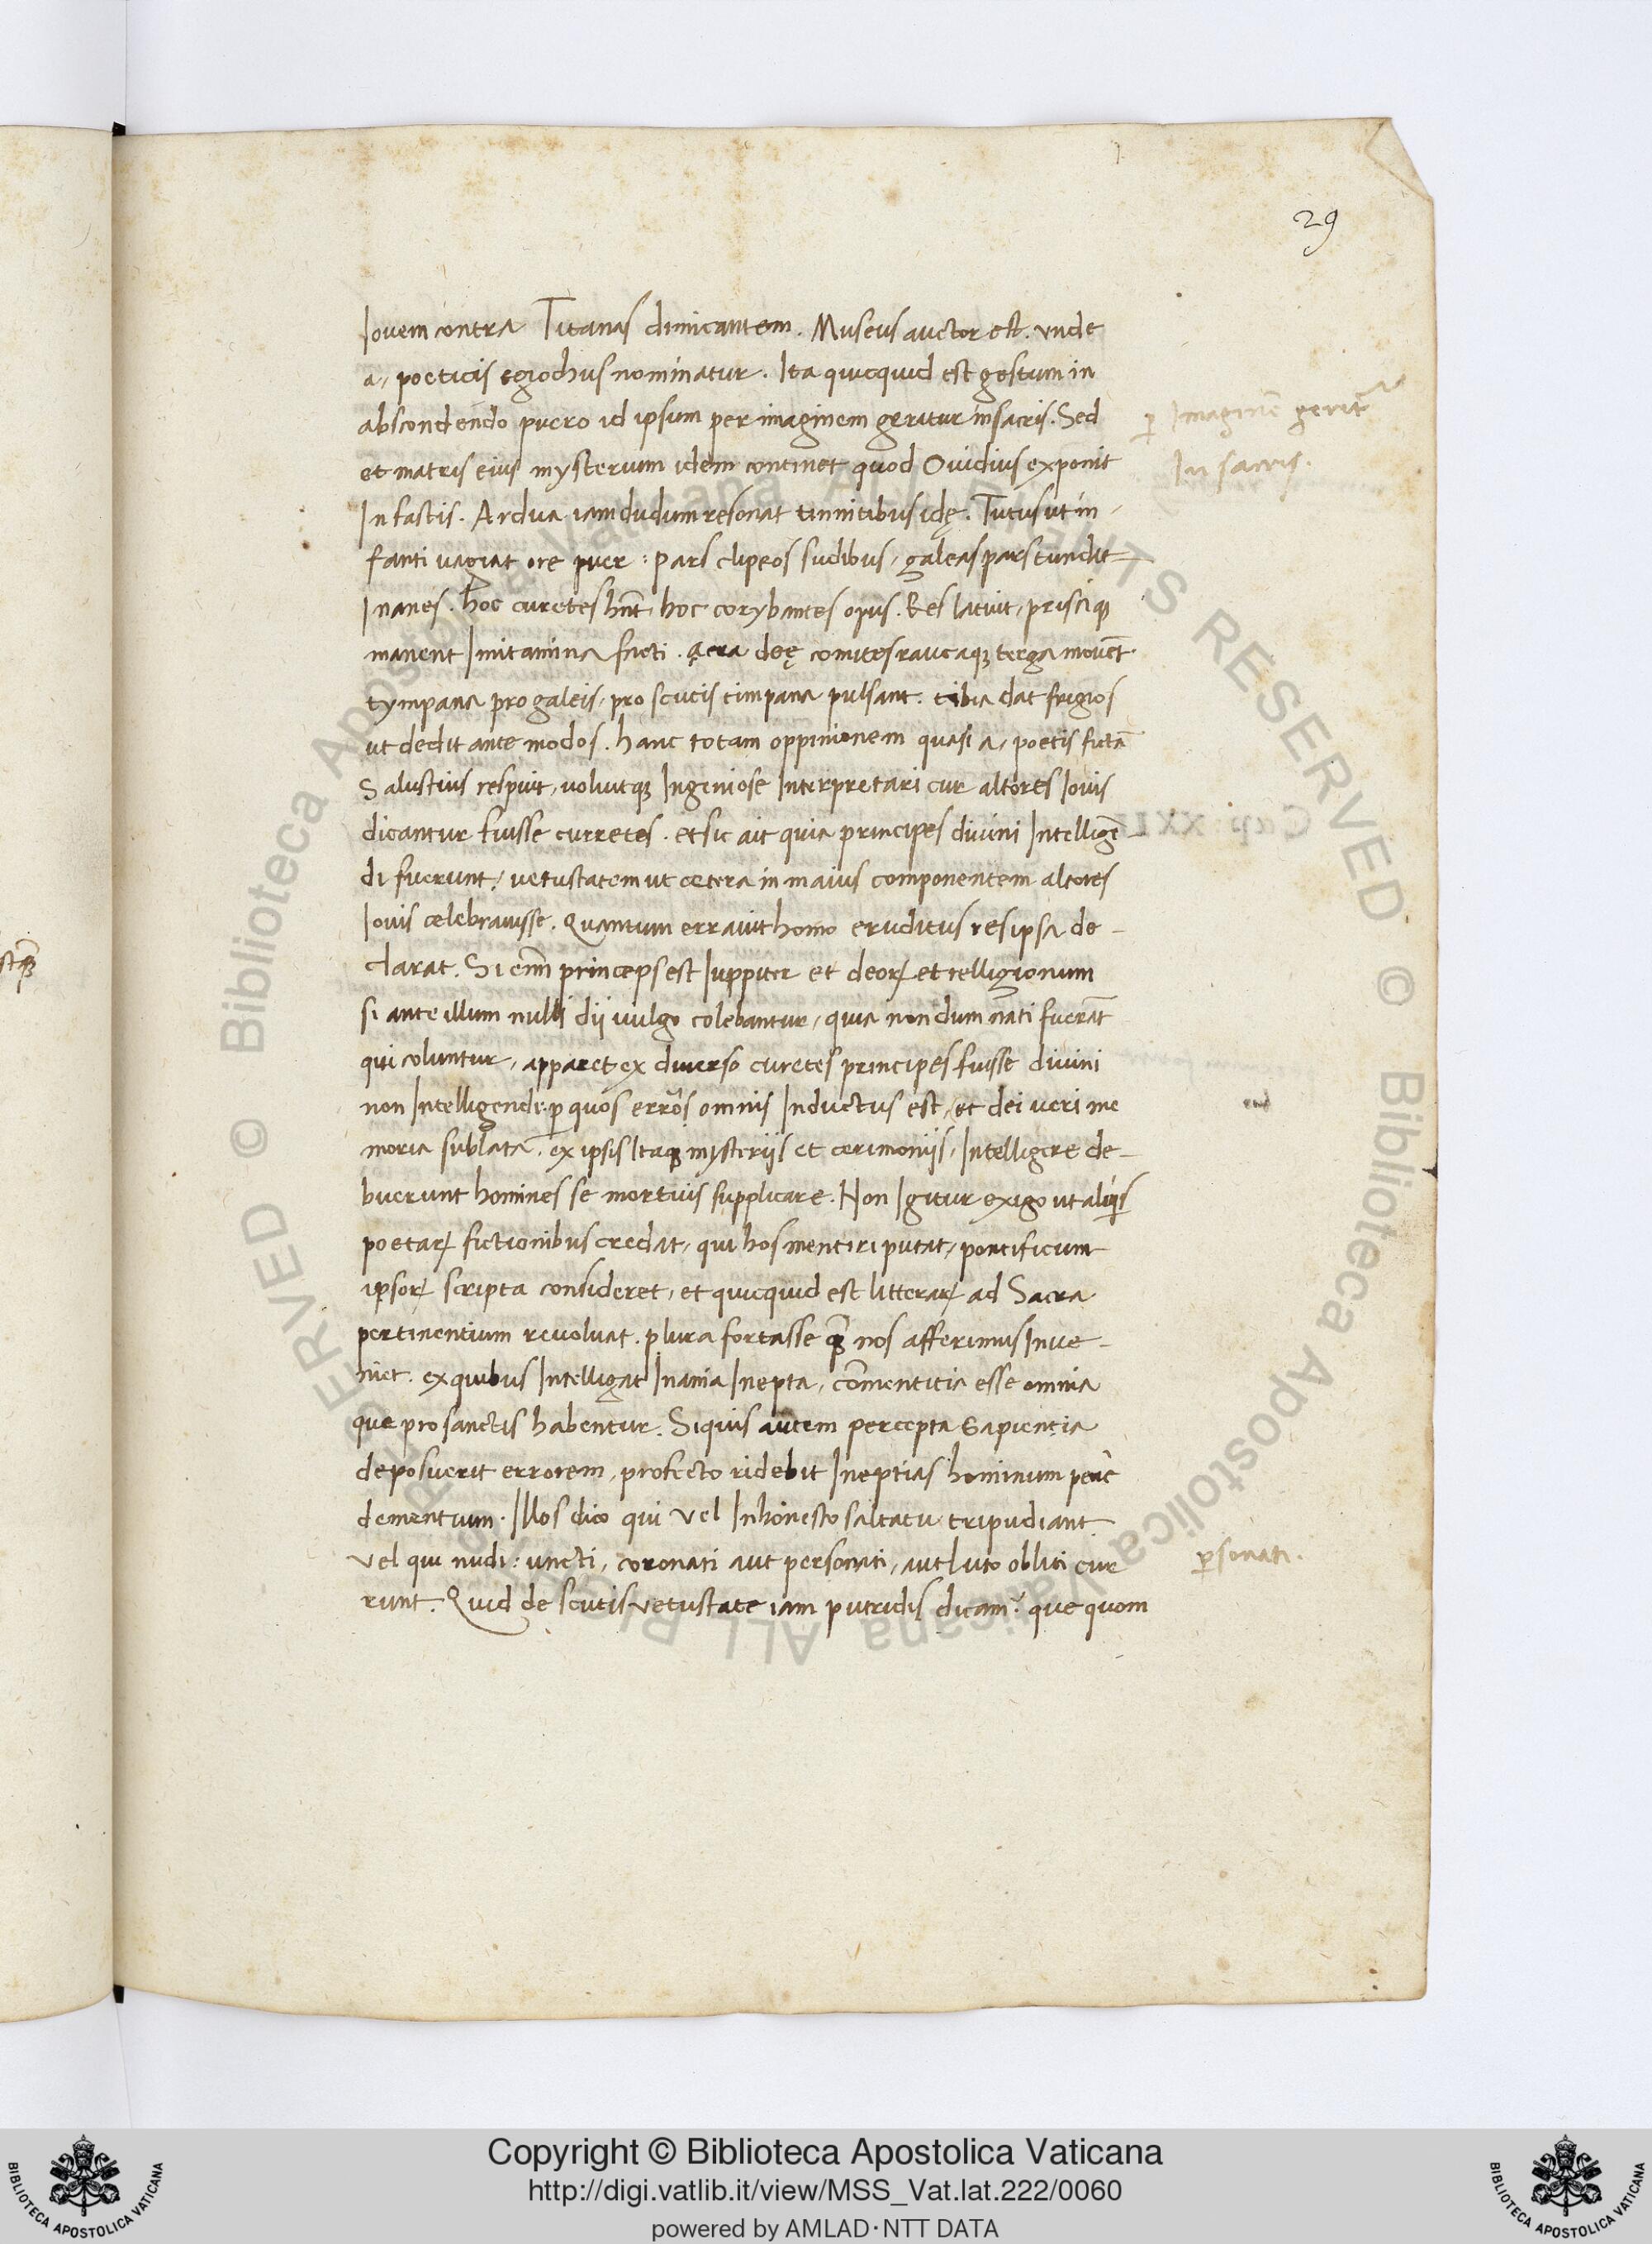 29
Iovem contra Titanas dimicantem. Museus auctor est. vnde
a, poeticis egiochus nominatur. Ita quicquid est gestum in
abscondendo puero id ipsum per imaginem geritur in sacris. Sed
ꝑ Imaginē gerit᷑
et matris eius mysterium idem continet quod Ouidius exponit
In sacris.
In fastis. Ardua iamdudum resonat tinnitibus idę. Tutus ut in,
fanti uagiat ore puer: pars clipeos sudibus, galeas pars tundit
Inanes. hoc curetes hn̄t, hoc corybantes opus. Res latuit, prisciqꝫ
manent Imitamina facti. ęera deę comites raucaqꝫ terga mouēt
tympana pro galeis, pro scutis timpana pulsant. tibia dat frigios
ut dedit ante modos. hanc totam oppinionem quasi a, poetis fictā
Salustius respuit, voluitqꝫ Ingeniose Interpretari cur altores Iouis
dicantur fuisse curretes. et sic ait quia principes diuini Intelligē-
di fuerunt, uetustatem ut cetera in maius componentem altores
Iouis celebrauisse. Quantum errauit homo eruditus res ipsa de-
clarat. Si eni̅m princeps est Iuppiter et deoꝝ et relligionum
si ante illum nulli dij uulgo colebantur, quia nondum nati fuerāt
qui coluntur, apparet ex diuerso curetes principes fuisse diuini
non Intelligendi, ꝑ quos error omnis Inductus est, et dei ueri me
moria sublata. ex ipsis Itaqꝫ mysterijs et cerimonijs, Intelligere de-
buerunt homines se mortuis supplicare. Non Igitur exigo ut aliqͥs
poetaꝝ fictionibus credat, qui hos mentiri putat, pontificum
ipsoꝝ scripta consideret, et quicquid est litteraꝝ ad Sacra
pertinentium reuoluat. plura fortasse qꝫ̄ nos afferimus Inue-
niet. ex quibus Intelligat Inania Inepta, com̄enticia esse omnia
que pro sanctis habentur. Siquis autem percepta sapientia
deposuerit errorem, profecto ridebit Ineptias hominum pene
dementium. Illos dico qui vel Inhonesto saltatu tripudiant
vel qui nudi: uncti, coronati aut personati, aut luto obliti cur
ꝑsonati.
runt. Quid de scutis vetustate iam putridis dicam? que quom
Copyright © Biblioteca Apostolica Vaticana
http://digi.vatlib.it/view/MSS_Vat.lat.222/0060
powered by AMLAD·NTT DATA
BIBLIOTECA APOSTOLICA VATICANA
BIBLIOTECA APOSTOLICA VATICANA
© Biblioteca Apostolica Vaticana ALL RIGHTS RESERVED
© Biblioteca Apostolica Vaticana ALL RIGHTS RESERVED